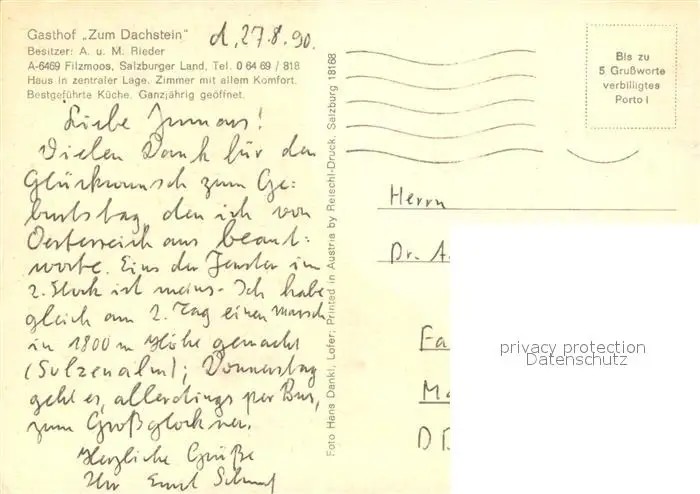 Gasthof „Zum Dachstein"
Besitzer: A. u. M. Rieder
A-6469 Filzmoos, Salzburger Land, Tel. 0 64 69 / 818
Haus in zentraler Lage. Zimmer mit allem Komfort.
Bestgeführte Küche. Ganzjährig geöffnet.
d. 27.8.90.
Liebe !
Vielen Dank für den
Glückwunsch zum Ge-
burtstag, den ich von
Oesterreich aus beant-
worte. Eins der Fenster im
2. Stock ist meins. Ich habe
gleich am 2. Tag einen Marsch
in 1800 m Höhe gemacht
(Sulzenalm); Donnerstag
geht es, allerdings per Bus,
zum Großglockner.
Herzliche Grüße
Ihr Ernst
Foto Hans Dankl, Lofer; Printed in Austria by Reischl-Druck, Salzburg 18168
Bis zu
5 Grußworte
verbilligtes
Porto!
Herrn
Dr. A.
Fa
Ma
DD
privacy protection
Datenschutz